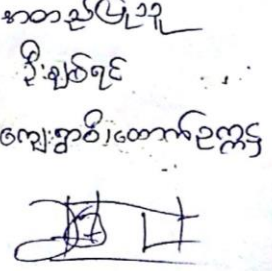 စာတည်ပြုသူ
ဦးချစ်ရင်
ကျေးရွာစီ၊ထောက်ဥက္ကဋ္ဌ